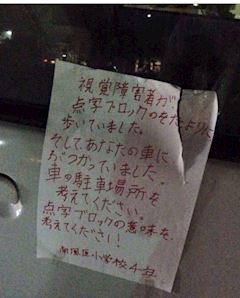 視覚障害者が
点字ブロックのをたよりに
歩いていました。
そして、あなたの車に
ぶつかっていました。
車の駐車場所を
考えてください。
点字ブロックの意味を、
考えてください!
小学校4年